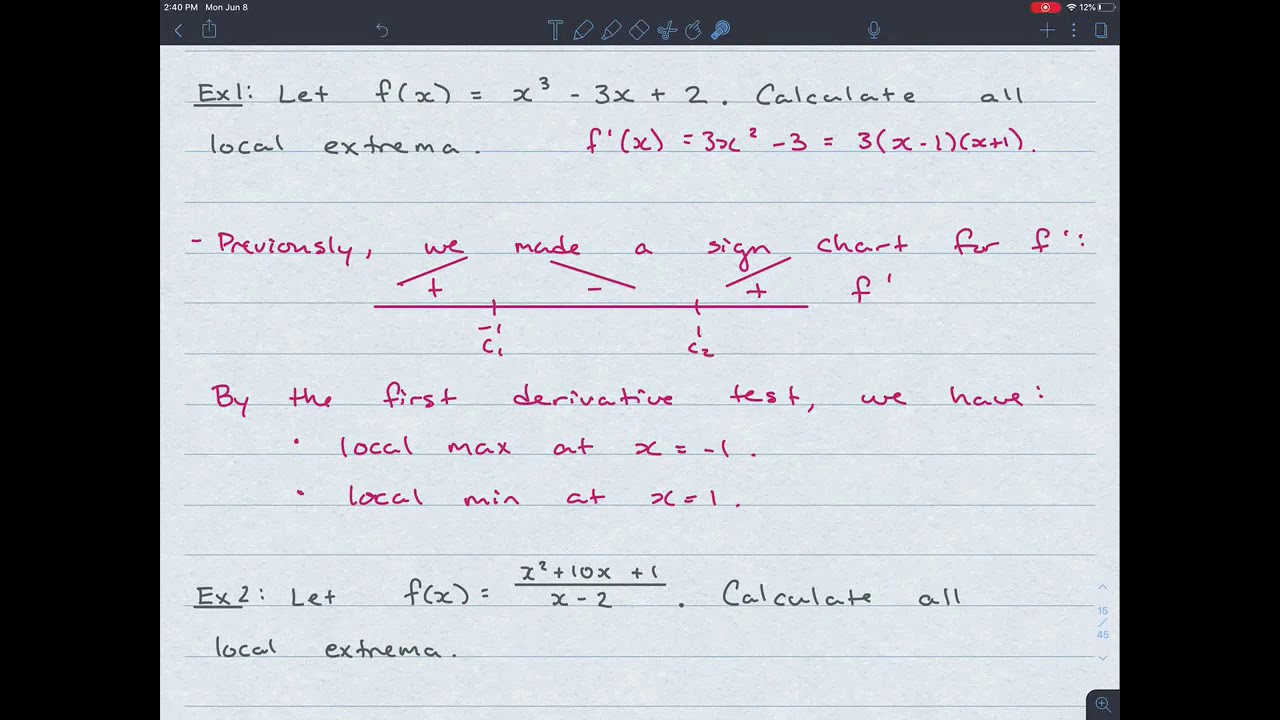 2:40 PM Mon Jun 8
12%
T
Ex1: Let f(x) = x³ - 3x + 2. Calculate all
local extrema. f'(x) = 3x² - 3 = 3(x-1)(x+1).
- Previously, we made a sign chart for f':
+ - + f'
-1 1
c₁ c₂
By the first derivative test, we have:
• local max at x = -1.
• local min at x = 1.
Ex2: Let f(x) = (x² + 10x + 1)/(x - 2). Calculate all
local extrema.
15
/
45